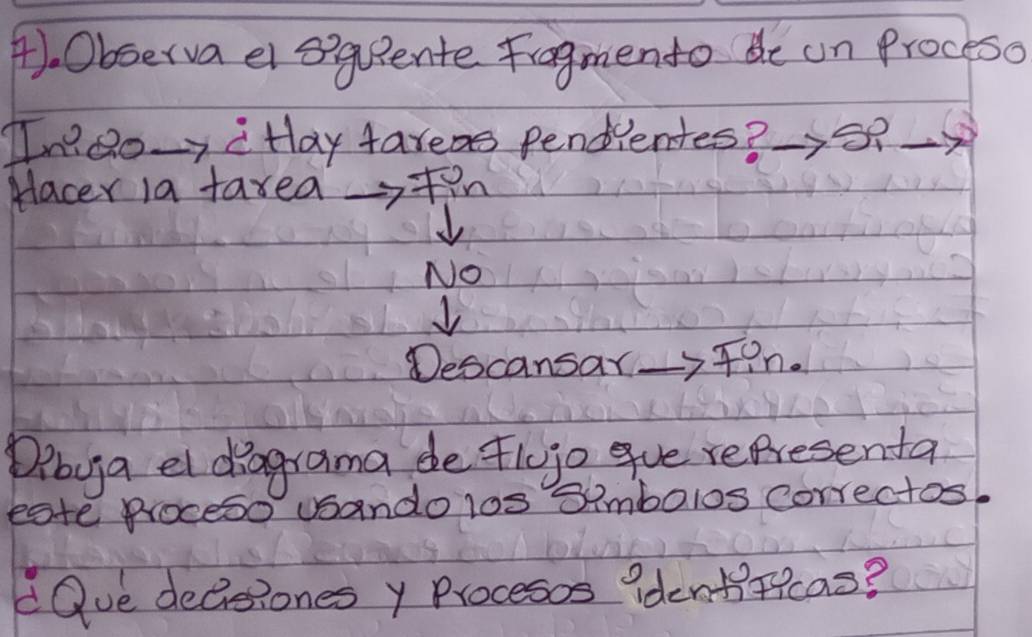 7). Observa el siguiente fragmento de un proceso
Inicio → ¿Hay tareas pendientes? → Si →
Hacer la tarea → Fin
↓
No
↓
Descansar → Fin.
Dibuja el diagrama de flujo que representa
este proceso usando los simbolos correctos.
¿Qué decisiones y procesos identificas?